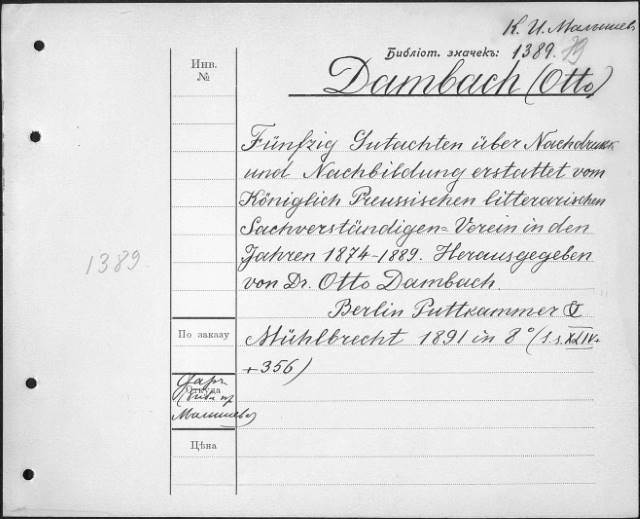 К. И. Малышев
Инв.
№
Библіот. значекъ: 1389.
Dambach (Otto)
Fünfzig Gutachten über Nachdruck
und Nachbildung erstattet vom
Königlich Preussischen litterarischen
Sachverständigen-Verein in den
Jahren 1874-1889. Herausgegeben
1389.
von Dr. Otto Dambach
Berlin Puttkammer &
По заказу
Mühlbrecht 1891 in 8° (S.s. XLIV.
+356)
Откуда
Малышева
Цѣна